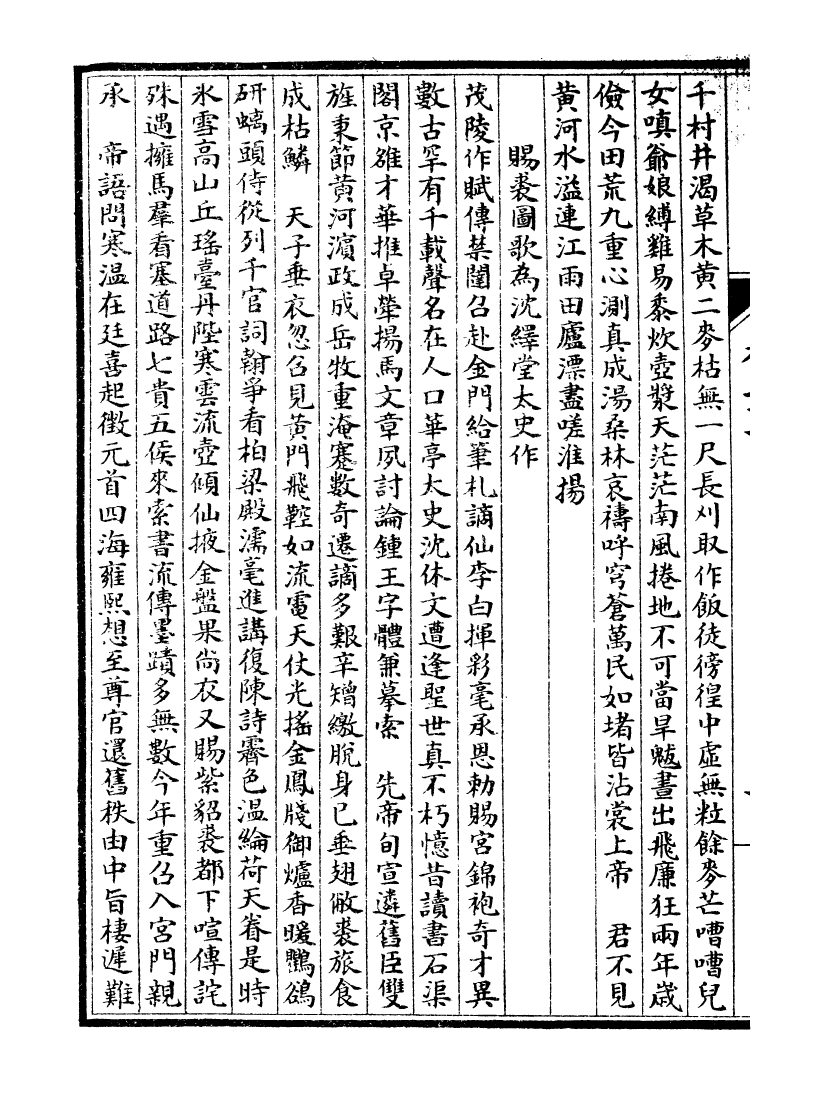 千村井渴草木黃二麥枯無一尺長刈取作飯徒徬徨中虛無粒餘麥芒嘈嘈兒
女嗔爺娘縛雞易黍炊壺漿天茫茫南風捲地不可當旱魃晝出飛廉狂兩年歲
儉今田荒九重心測真成湯桒林哀禱呼穹蒼萬民如堵皆沾裳上帝　君不見
黃河水溢連江雨田廬漂盡嗟淮揚
賜裘圖歌為沈繹堂太史作
茂陵作賦傳禁闥召赴金門給筆札謫仙李白揮彩毫承恩勅賜宮錦袍奇才異
數古罕有千載聲名在人口華亭太史沈休文遭逢聖世真不朽憶昔讀書石渠
閣京雒才華推卓犖揚馬文章夙討論鍾王字體兼摹索　先帝旬宣遴舊臣雙
旌秉節黃河濵政成岳牧重淹蹇數奇遷謫多艱辛矰繳脫身已垂翅敝裘旅食
成枯鱗　天子垂衣忽召見黃門飛鞚如流電天仗光搖金鳳牋御爐香暖鸜鵒
研螭頭侍從列千官詞翰爭看柏梁殿濡毫進講復陳詩霽色温綸荷天眷是時
氷雪高山丘瑤臺丹陛寒雲流壺傾仙掖金盤果尚衣又賜紫貂裘都下喧傳詫
殊遇擁馬羣看塞道路七貴五侯來索書流傳墨蹟多無數今年重召入宮門親
承　帝語問寒温在廷喜起徵元首四海雍熙想至尊官還舊秩由中旨棲遲難